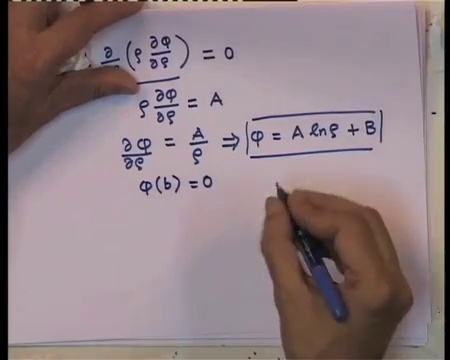 ∂/∂ρ (ρ ∂φ/∂ρ) = 0
ρ ∂φ/∂ρ = A
∂φ/∂ρ = A/ρ ⇒ φ = A ln ρ + B
φ(b) = 0